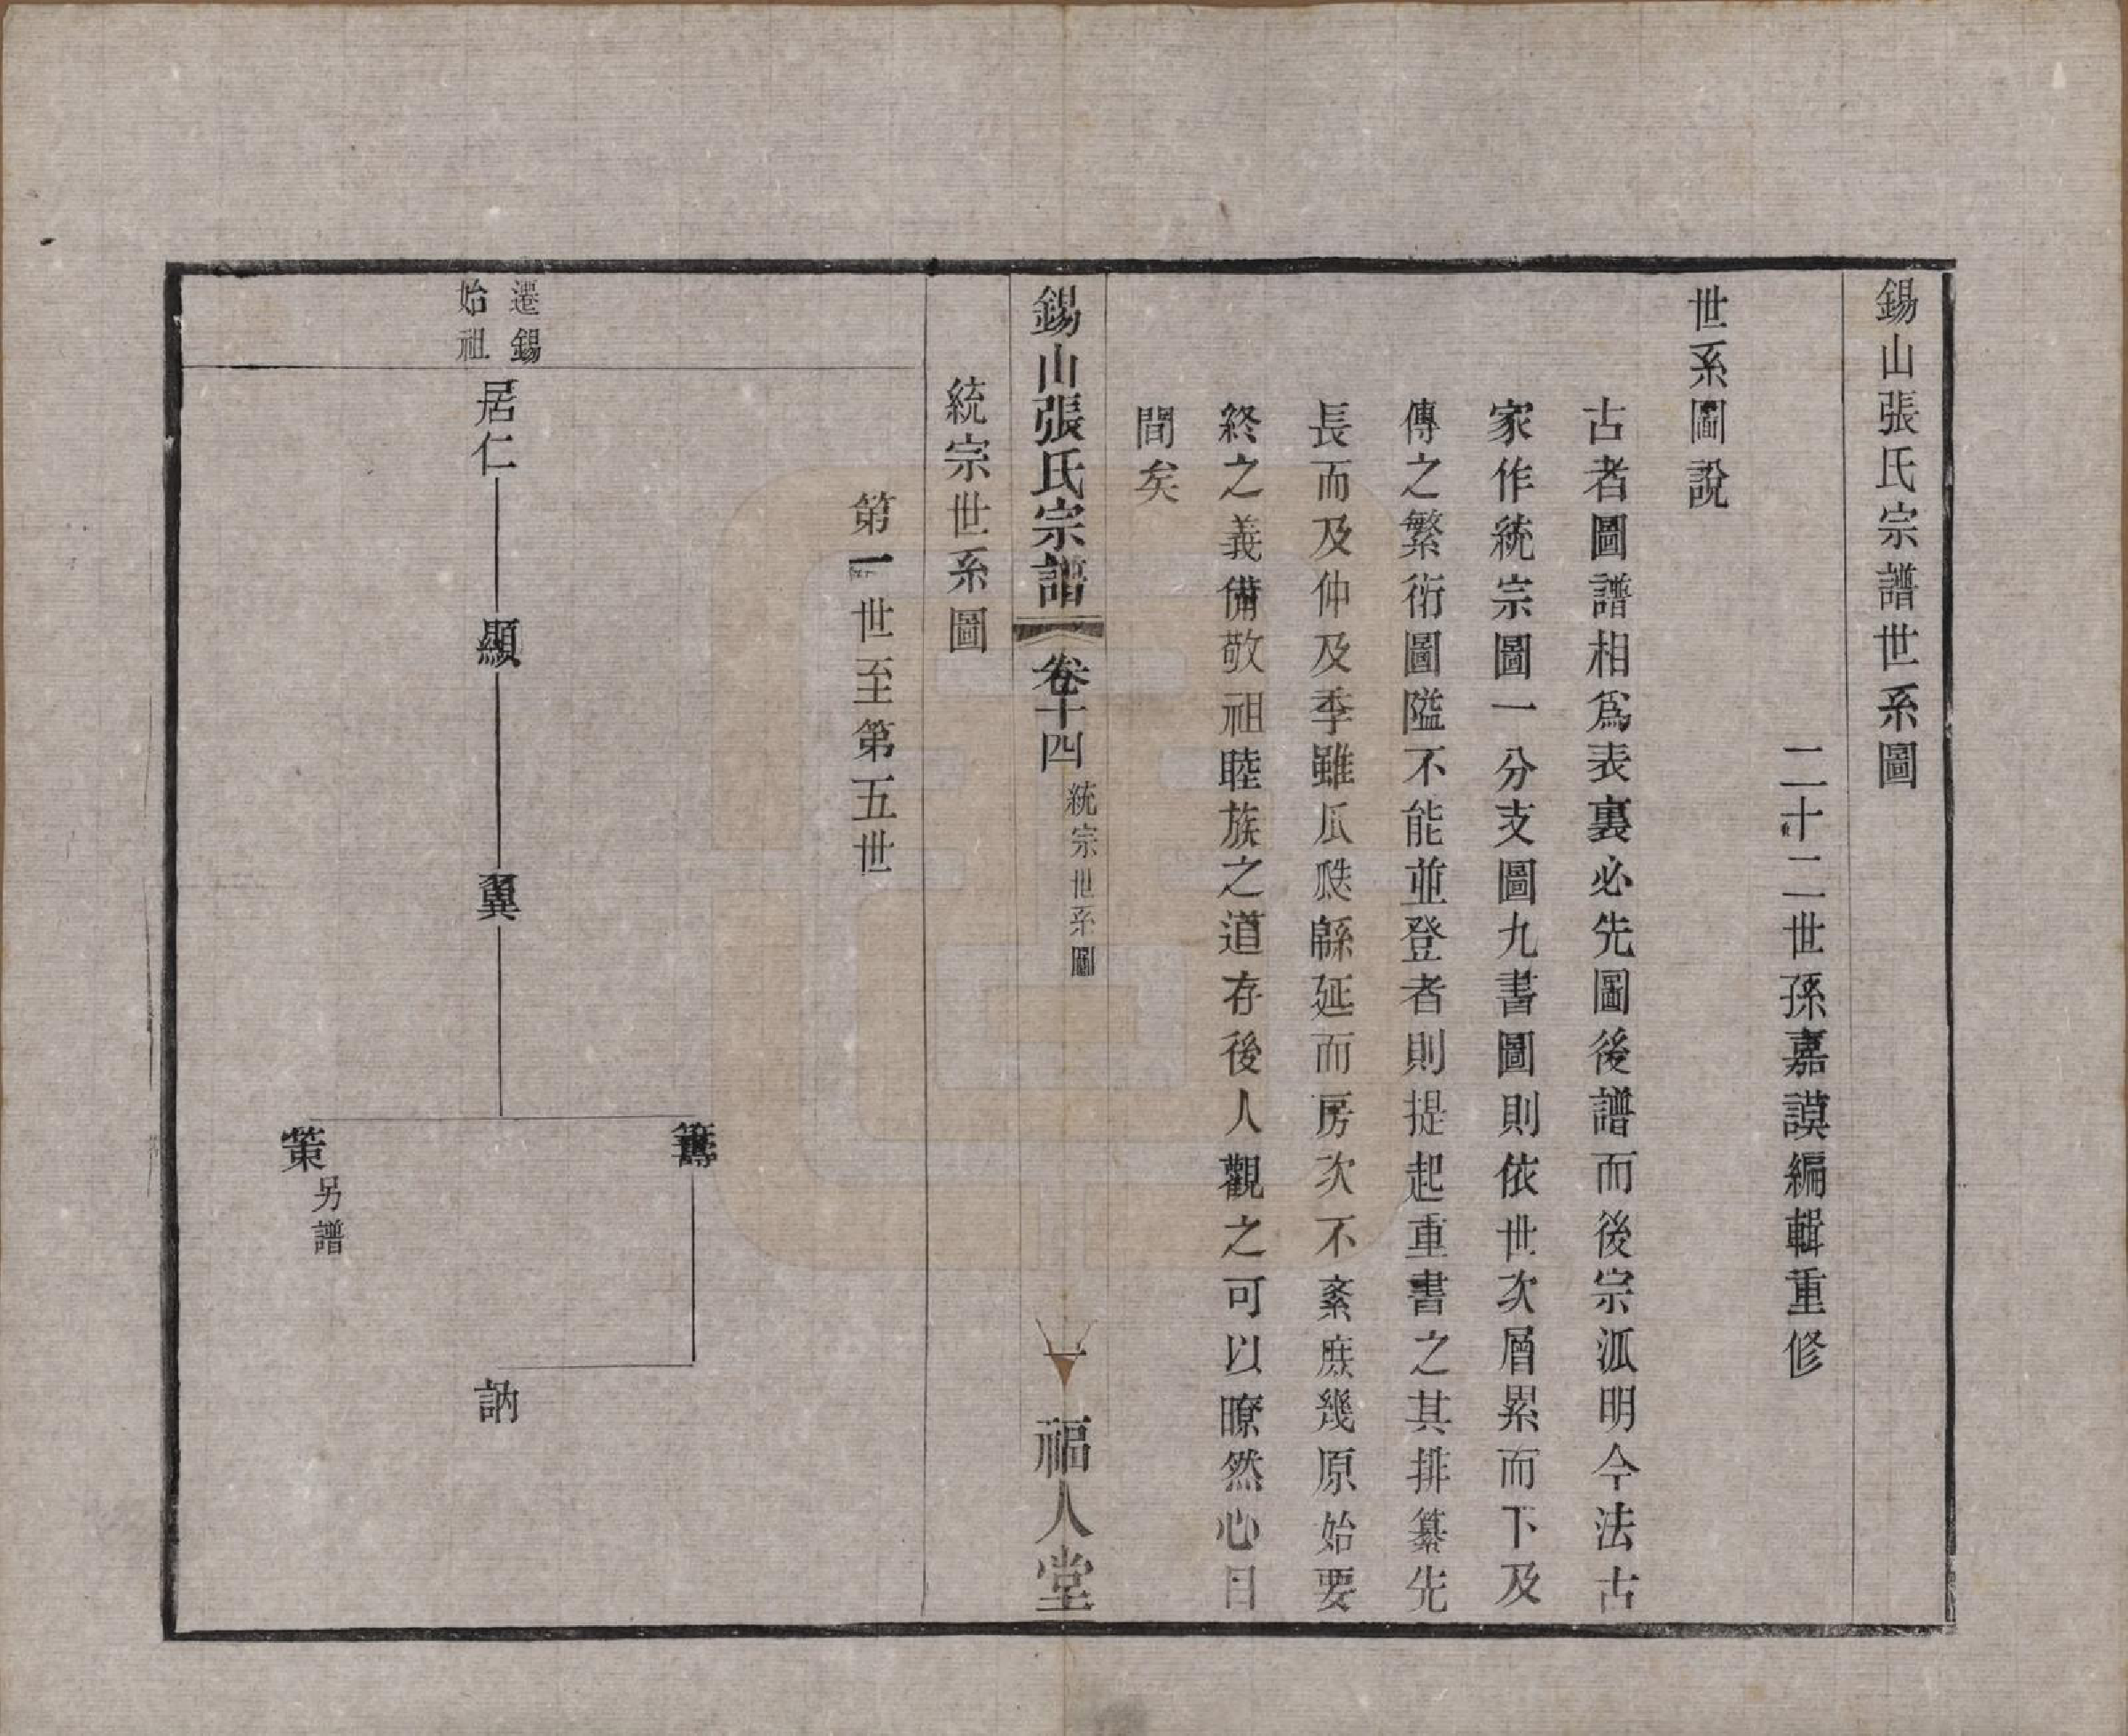 錫山張氏宗譜世系圖
二十二世孫嘉謨編輯重修
世系圖說
古者圖譜相爲表裏必先圖後譜而後宗派明今法古
家作統宗圖一分支圖九書圖則依世次層累而下及
傳之繁衍圖隘不能並登者則提起重書之其排纂先
長而及仲及季雖瓜瓞緜延而房次不紊庶幾原始要
終之義備敬祖睦族之道存後人觀之可以瞭然心目
間矣
錫山張氏宗譜 卷十四 統宗世系圖 一 福人堂
統宗世系圖
第一世至第五世
遷錫
始祖
居仁
顯
翼
籌
策 另譜
訥